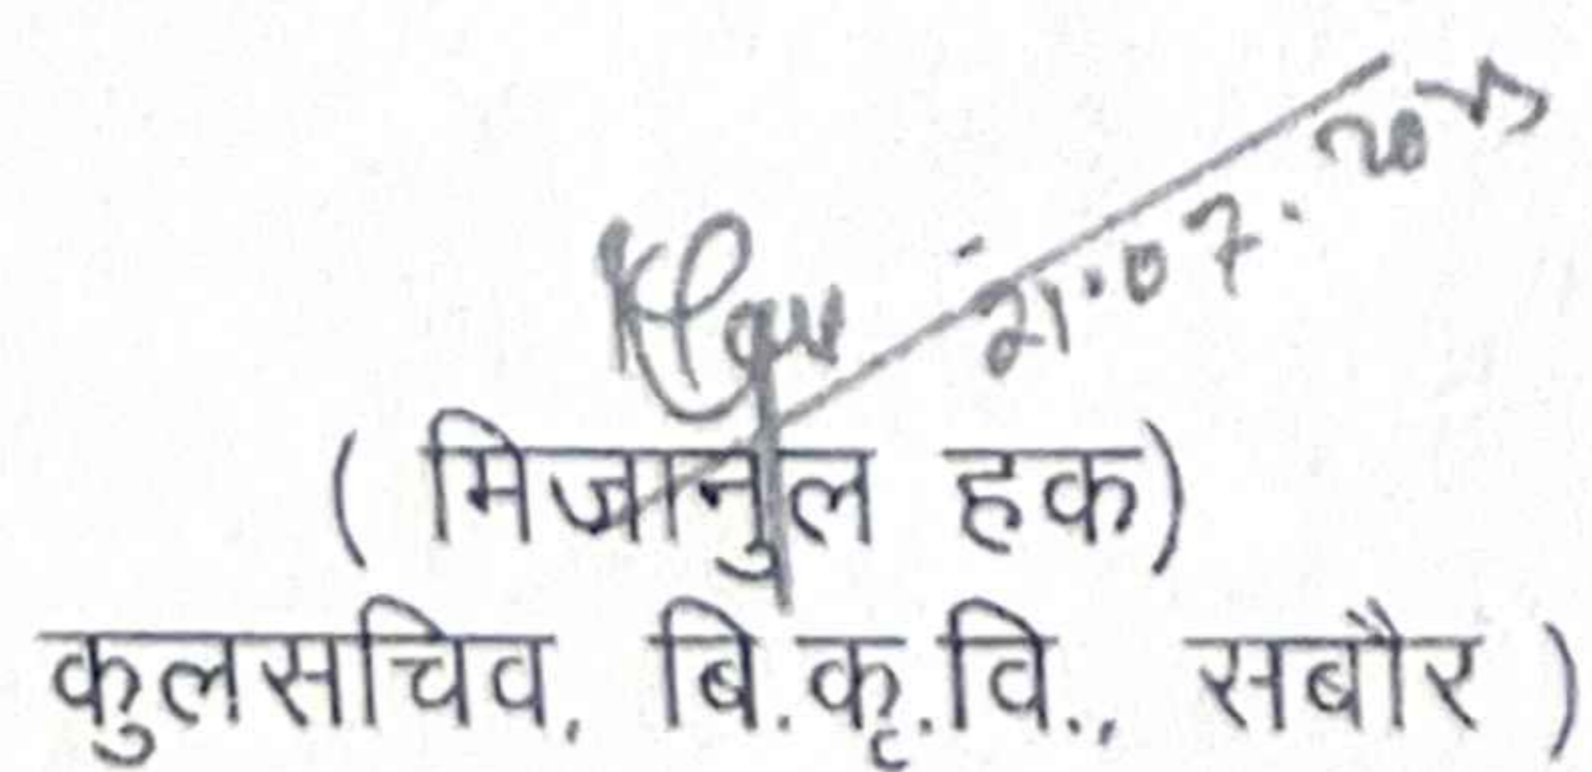 21.07.2023
( मिजानुल हक)
कुलसचिव, बि.कृ.वि., सबौर )